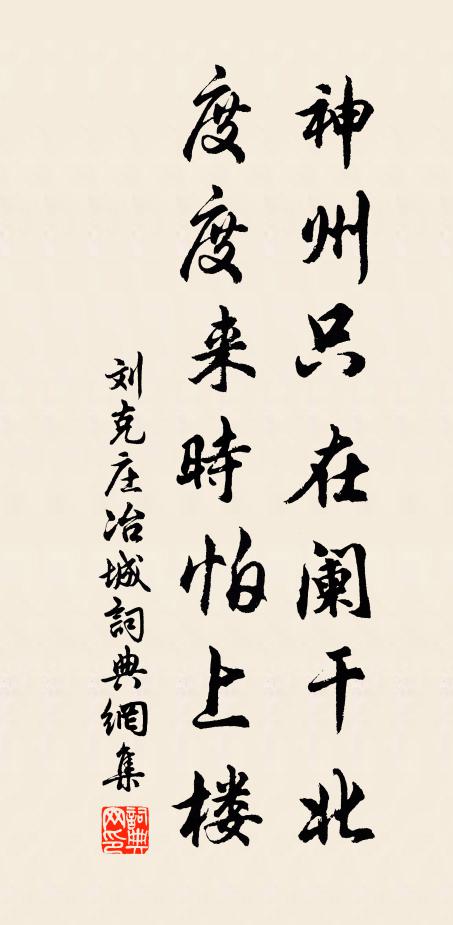 神州只在阑干北
度度来時怕上楼
刘克庄冶城詞典網集
詞典网印